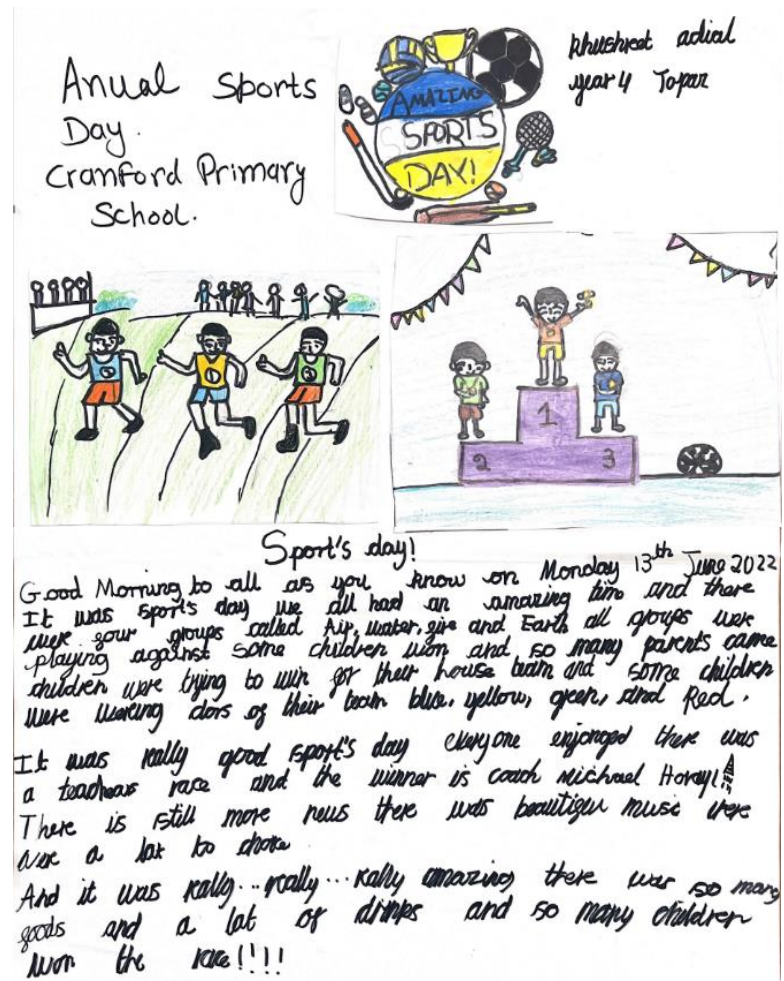 Anual Sports
Day.
Cranford Primary
School.
AMAZING
SPORTS
DAY!
Khushreet adial
year 4 Topaz
1
2
3
Sport's day!
Good Morning to all as you know on Monday 13th June 2022
It was sports day we all had an amazing tim and there
were four groups called Air, water, fire and Earth all groups were
playing against some children won and so many parents came
children were trying to win for their house team and some children
were wering clors of their team blue, yellow, green, and Red.
It was really good sport's day everyone enjonged there was
a teachears race and the winner is coach michael Horay!
There is still more news there was beautiful music there
a lot to
And it was really... really... really amazing there was so many
foods and a lot of drinks and so many children
won the race!!!!